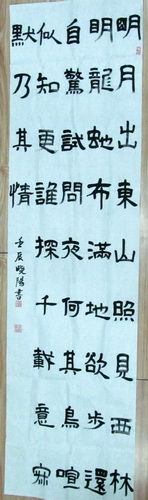 明月出東山照見西林
明龍虵布滿地欲步還
自驚試問夜何其鳥喧
似知更誰探千載意寂
默乃其情
壬辰曉陽書